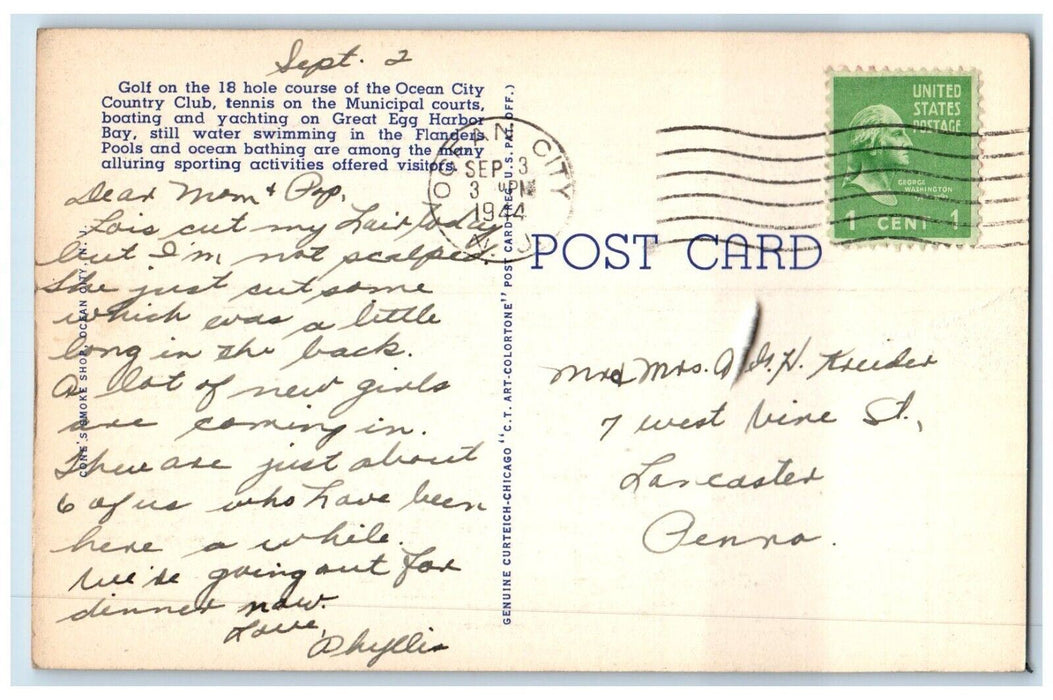 Sept. 2
Golf on the 18 hole course of the Ocean City
Country Club, tennis on the Municipal courts,
boating and yachting on Great Egg Harbor
Bay, still water swimming in the Flanders
Pools and ocean bathing are among the many
alluring sporting activities offered visitors.
Dear Mom & Pop,
Lois cut my hair today
but I'm not scalped.
She just cut some
which was a little
long in the back.
A lot of new girls
are coming in.
There are just about
6 of us who have been
here a while.
We're going out for
dinner now.
Love,
Phyllis
CONE'S SMOKE SHOP, OCEAN CITY, N. J.
GENUINE CURTEICH-CHICAGO "C.T. ART-COLORTONE" POST CARD (REG. U.S. PAT. OFF.)
OCEAN CITY
SEP 3
3 PM
1944
N.J.
UNITED
STATES
POSTAGE
GEORGE
WASHINGTON
1 CENT 1
POST CARD
Mr & Mrs. H. Kreider
7 West Vine St.,
Lancaster
Penna.